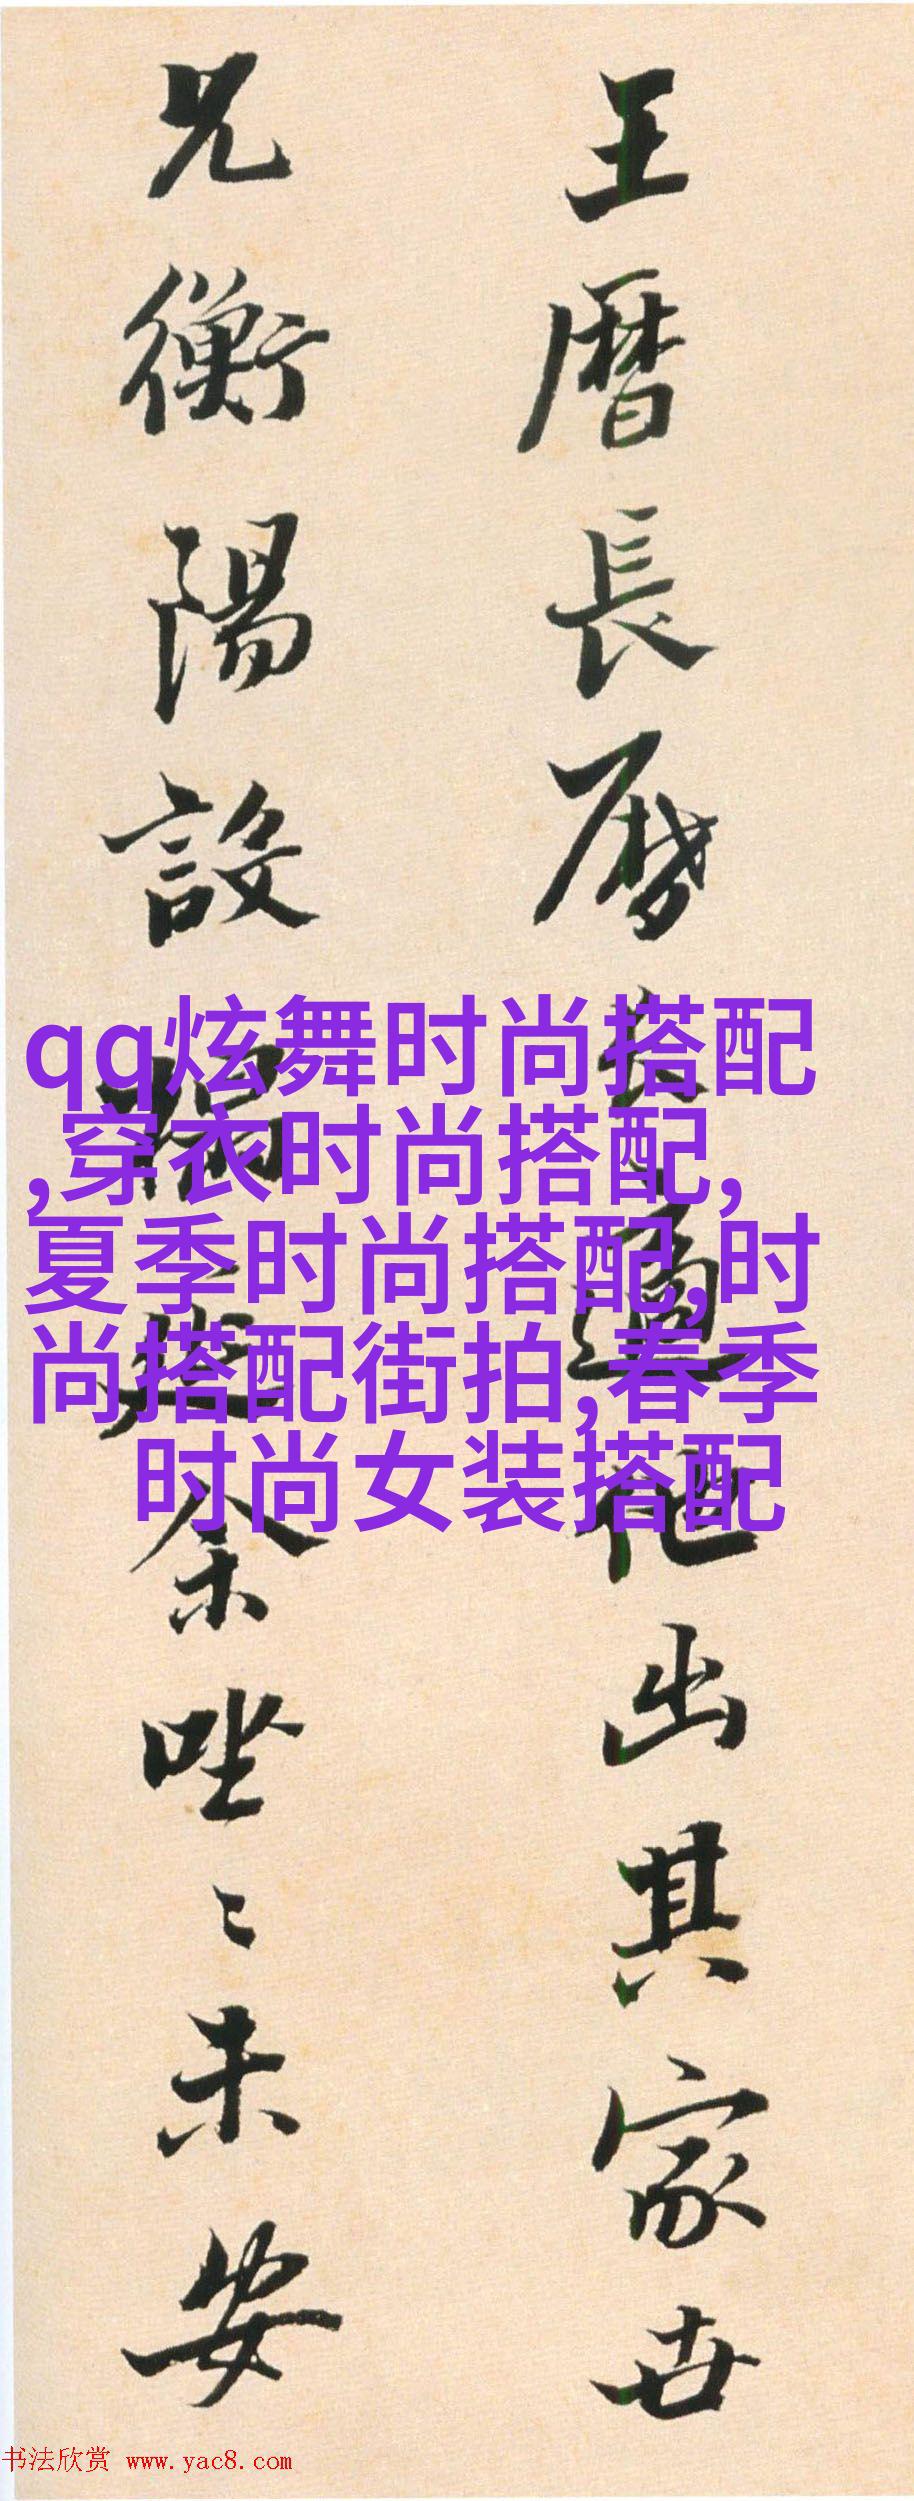 王曆長曆
適他出其家世
兄衡陽設
余唑〻未安
qq炫舞时尚搭配
,穿衣时尚搭配,
夏季时尚搭配,时
尚搭配街拍,春季
时尚女装搭配
书法欣赏 www.yac8.com